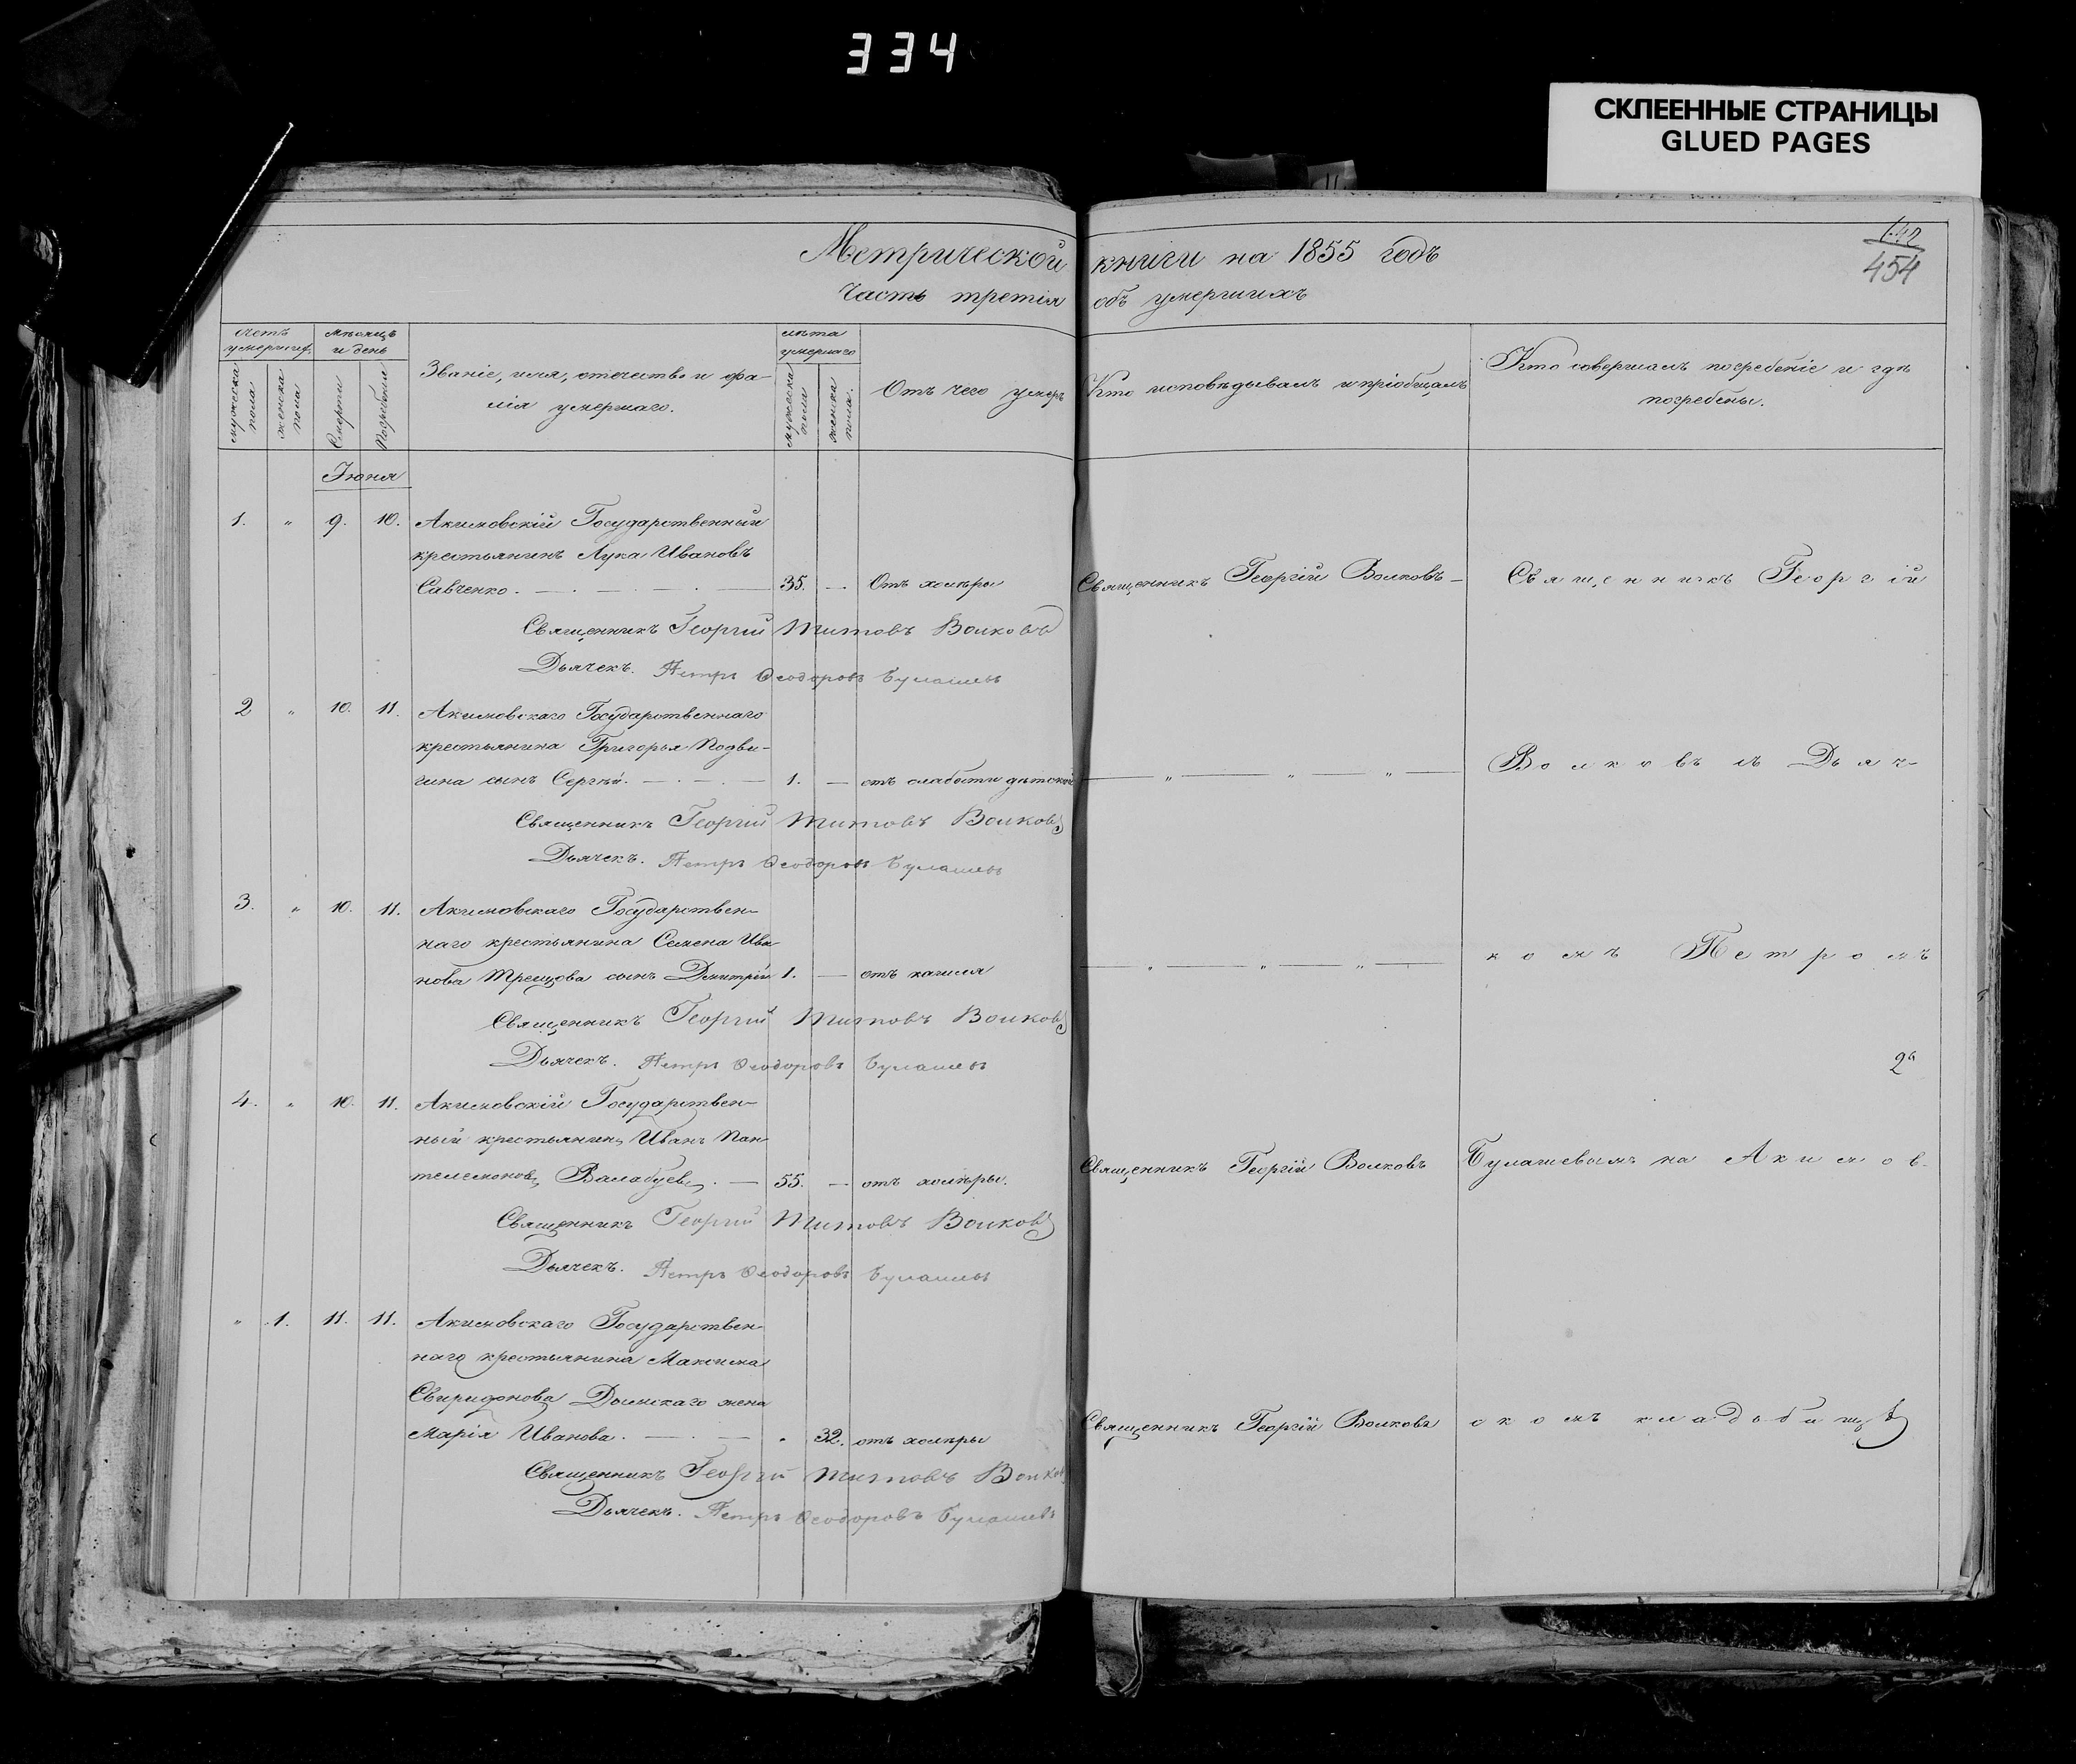 334
СКЛЕЕННЫЕ СТРАНИЦЫ
GLUED PAGES
454
Метрической книги на 1855 годъ
Часть третія объ умершихъ
счетъ умершихъ
мужеска пола
женска пола
мѣсяцъ и день
Смерти
Погребенія
Званіе, имя, отечество и фа-
милія умершаго.
лѣта умершаго
мужеска пола
женска пола.
Отъ чего умеръ
Кто исповѣдывалъ и пріобщалъ
Кто совершалъ погребеніе и гдѣ
погребены.
Іюня
1. „ 9. 10. Акимовскій Государственный
крестьянинъ Лука Ивановъ
Савченко. 35. — Отъ холеры Священникъ Георгій Волковъ — Священникъ Георгій
Священникъ Георгий Титовъ Волковъ
Дьячекъ. Петръ Ѳеодоровъ Булашевъ
2 „ 10. 11. Акимовскаго Государственнаго
крестьянина Григорья Подви-
гина сынъ Сергѣй. 1. — отъ слабости дѣтской „ „ „ Волковъ съ Дьяч-
Священникъ Георгий Титовъ Волковъ
Дьячекъ. Петръ Ѳеодоровъ Булашевъ
3. „ 10. 11. Акимовскаго Государствен-
наго крестьянина Семена Ива-
нова Трещова сынъ Дмитрій 1. — отъ кашля „ „ „ комъ Петромъ
Священникъ Георгий Титовъ Волковъ
Дьячекъ. Петръ Ѳеодоровъ Булашевъ
4. „ 10. 11. Акимовскій Государствен-
ный крестьянинъ Иванъ Пан-
телемоновъ Валабуевъ. — 55. — отъ холеры. Священникъ Георгій Волковъ Булашевымъ на Акимов-
Священникъ Георгий Титовъ Волковъ
Дьячекъ. Петръ Ѳеодоровъ Булашевъ
„ 1. 11. 11. Акимовскаго Государствен-
наго крестьянина Максима
Свиридонова Долнскаго жена
Марія Иванова. „ 32. отъ холеры Священникъ Георгій Волковъ скомъ кладбищѣ
Священникъ Георгий Титовъ Волковъ
Дьячекъ. Петръ Ѳеодоровъ Булашевъ